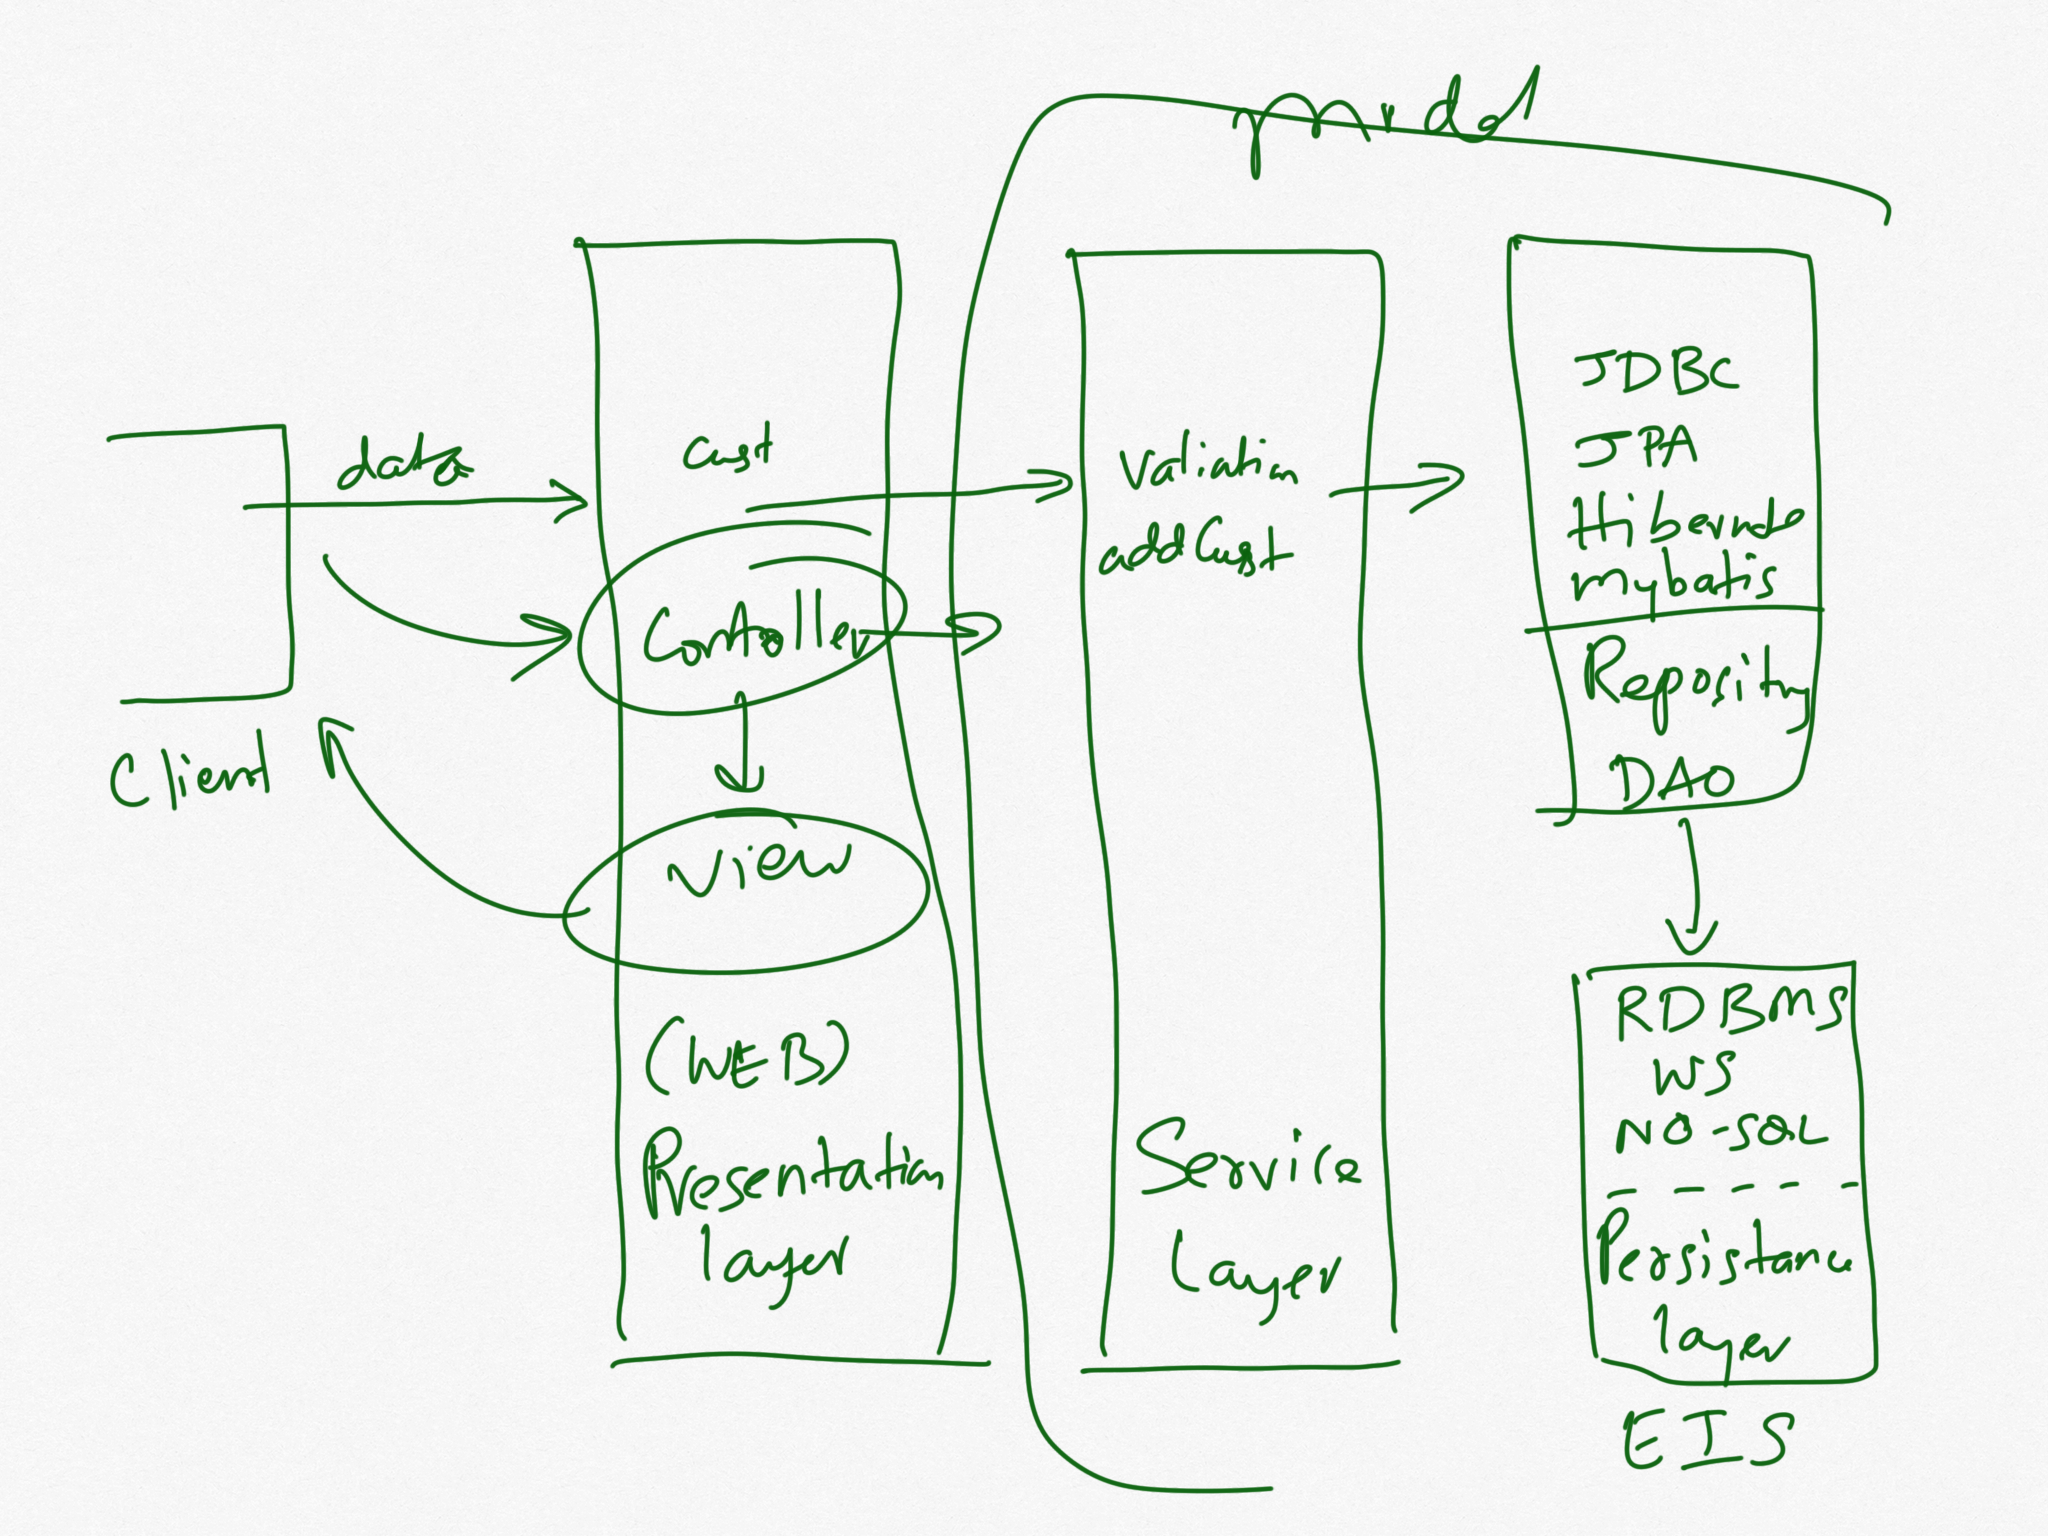 model
data
Client
Cust
Controller
View
(WEB)
Presentation
layer
Valiation
addCust
Service
Layer
JDBC
JPA
Hibernate
mybatis
Repository
DAO
RDBMS
WS
NO-SQL
Persistance
layer
EIS